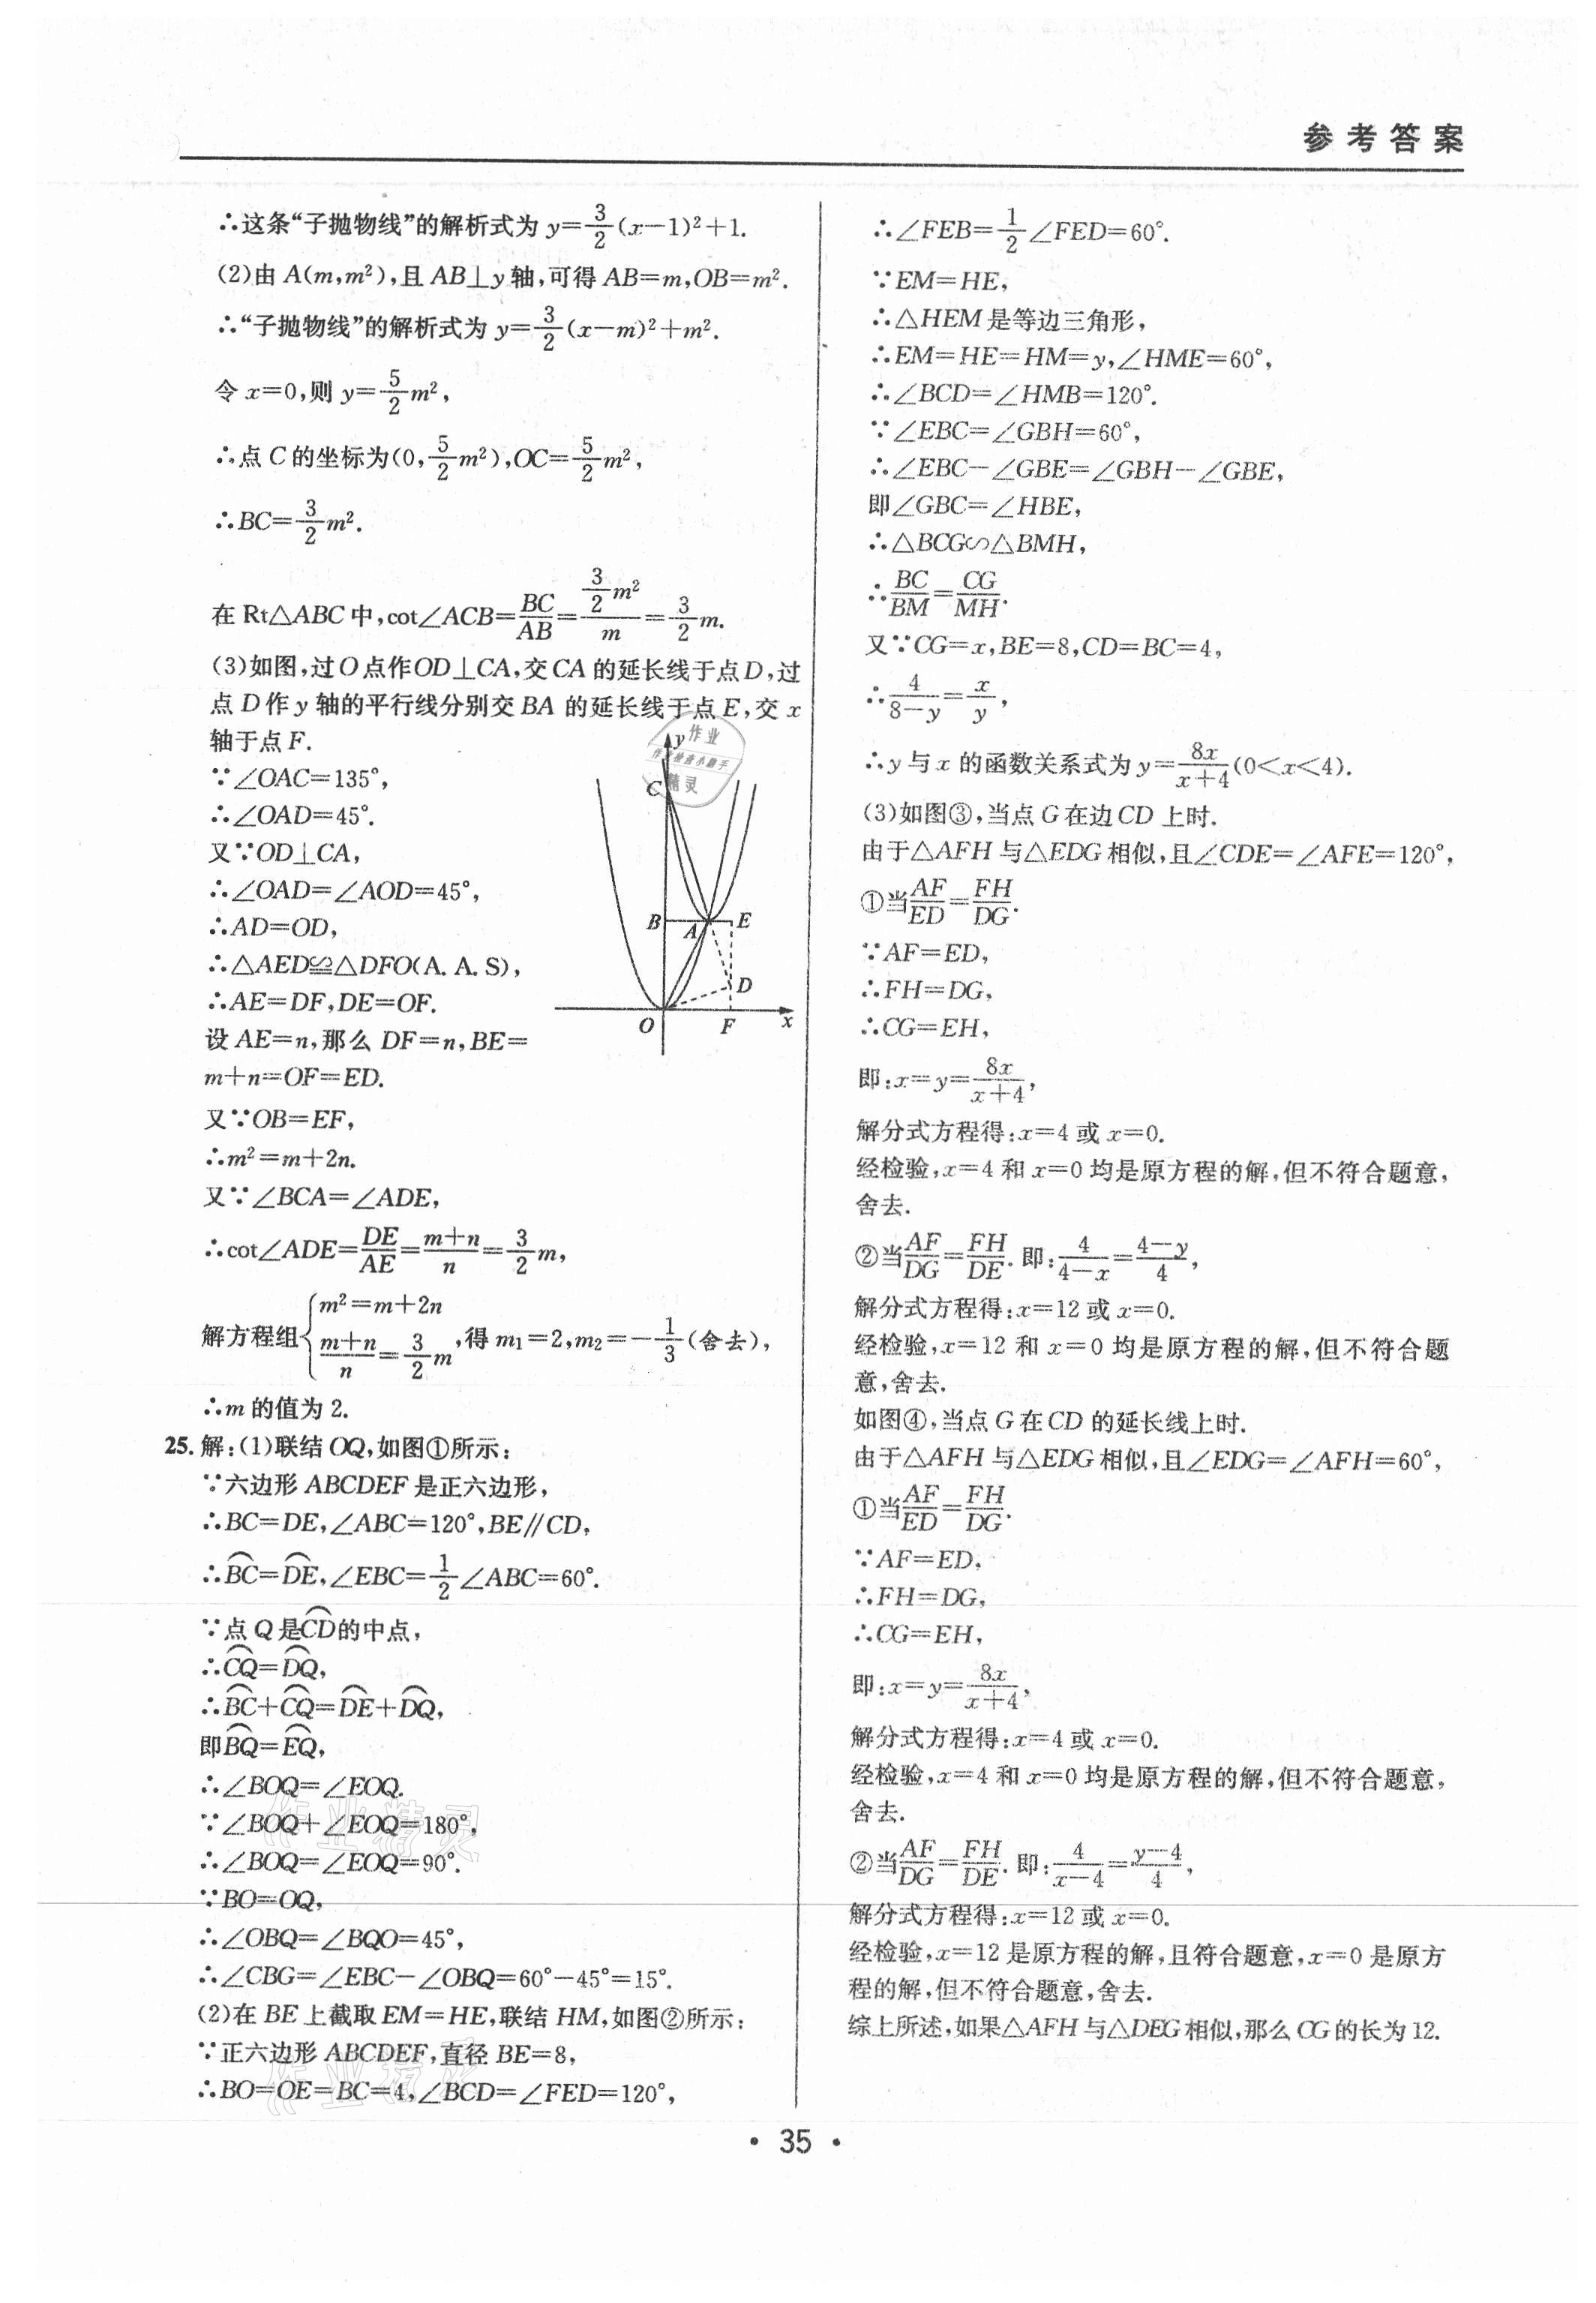 参考答案
∴这条“子抛物线”的解析式为 y=3/2(x-1)²+1.
(2)由 A(m,m²),且 AB⊥y 轴,可得 AB=m,OB=m².
∴“子抛物线”的解析式为 y=3/2(x-m)²+m².
令 x=0,则 y=5/2m²,
∴点 C 的坐标为(0,5/2m²),OC=5/2m²,
∴BC=3/2m².
在 Rt△ABC 中,cot∠ACB=BC/AB=(3/2m²)/m=3/2m.
(3)如图,过O点作OD⊥CA,交CA的延长线于点D,过
点 D 作 y 轴的平行线分别交 BA 的延长线于点 E,交 x
轴于点 F.
∵∠OAC=135°,
∴∠OAD=45°.
又∵OD⊥CA,
∴∠OAD=∠AOD=45°,
∴AD=OD,
∴△AED≌△DFO(A.A.S),
∴AE=DF,DE=OF.
设 AE=n,那么 DF=n,BE=
m+n=OF=ED.
又∵OB=EF,
∴m²=m+2n.
又∵∠BCA=∠ADE,
∴cot∠ADE=DE/AE=(m+n)/n=3/2m,
解方程组{m²=m+2n
(m+n)/n=3/2m,得 m₁=2,m₂=-1/3(舍去),
∴m 的值为 2.
y
C
B
A
E
D
O
F
x
作业
作业检查小助手
精灵
25.解:(1)联结 OQ,如图①所示:
∵六边形 ABCDEF 是正六边形,
∴BC=DE,∠ABC=120°,BE∥CD,
∴⌒BC=⌒DE,∠EBC=1/2∠ABC=60°.
∵点 Q 是⌒CD的中点,
∴⌒CQ=⌒DQ,
∴⌒BC+⌒CQ=⌒DE+⌒DQ,
即⌒BQ=⌒EQ,
∴∠BOQ=∠EOQ.
∵∠BOQ+∠EOQ=180°,
∴∠BOQ=∠EOQ=90°.
∵BO=OQ,
∴∠OBQ=∠BQO=45°,
∴∠CBG=∠EBC-∠OBQ=60°-45°=15°.
(2)在 BE 上截取 EM=HE,联结 HM,如图②所示:
∵正六边形 ABCDEF,直径 BE=8,
∴BO=OE=BC=4,∠BCD=∠FED=120°,
作业精灵
作业精灵
∴∠FEB=1/2∠FED=60°.
∵EM=HE,
∴△HEM 是等边三角形,
∴EM=HE=HM=y,∠HME=60°,
∴∠BCD=∠HMB=120°.
∵∠EBC=∠GBH=60°,
∴∠EBC-∠GBE=∠GBH-∠GBE,
即∠GBC=∠HBE,
∴△BCG∽△BMH,
∴BC/BM=CG/MH.
又∵CG=x,BE=8,CD=BC=4,
∴4/(8-y)=x/y,
∴y 与 x 的函数关系式为 y=8x/(x+4)(0<x<4).
(3)如图③,当点 G 在边 CD 上时.
由于△AFH 与△EDG 相似,且∠CDE=∠AFE=120°,
①当AF/ED=FH/DG.
∵AF=ED,
∴FH=DG,
∴CG=EH,
即:x=y=8x/(x+4),
解分式方程得:x=4 或 x=0.
经检验,x=4 和 x=0 均是原方程的解,但不符合题意,
舍去.
②当AF/DG=FH/DE.即:4/(4-x)=(4-y)/4,
解分式方程得:x=12 或 x=0.
经检验,x=12 和 x=0 均是原方程的解,但不符合题
意,舍去.
如图④,当点 G 在 CD 的延长线上时.
由于△AFH 与△EDG 相似,且∠EDG=∠AFH=60°,
①当AF/ED=FH/DG.
∵AF=ED,
∴FH=DG,
∴CG=EH,
即:x=y=8x/(x+4),
解分式方程得:x=4 或 x=0.
经检验,x=4 和 x=0 均是原方程的解,但不符合题意,
舍去.
②当AF/DG=FH/DE.即:4/(x-4)=(y-4)/4,
解分式方程得:x=12 或 x=0.
经检验,x=12 是原方程的解,且符合题意,x=0 是原方
程的解,但不符合题意,舍去.
综上所述,如果△AFH 与△DEG 相似,那么 CG 的长为 12.
• 35 •